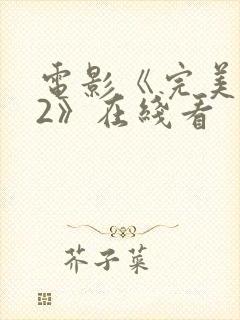 電影《完美
2》在綫看
芥子菜